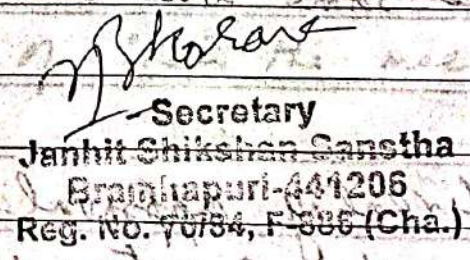 Secretary
Janhit Shikshan Sanstha
Bramhapuri-441206
Reg. No. 70/94, F-886 (Cha.)